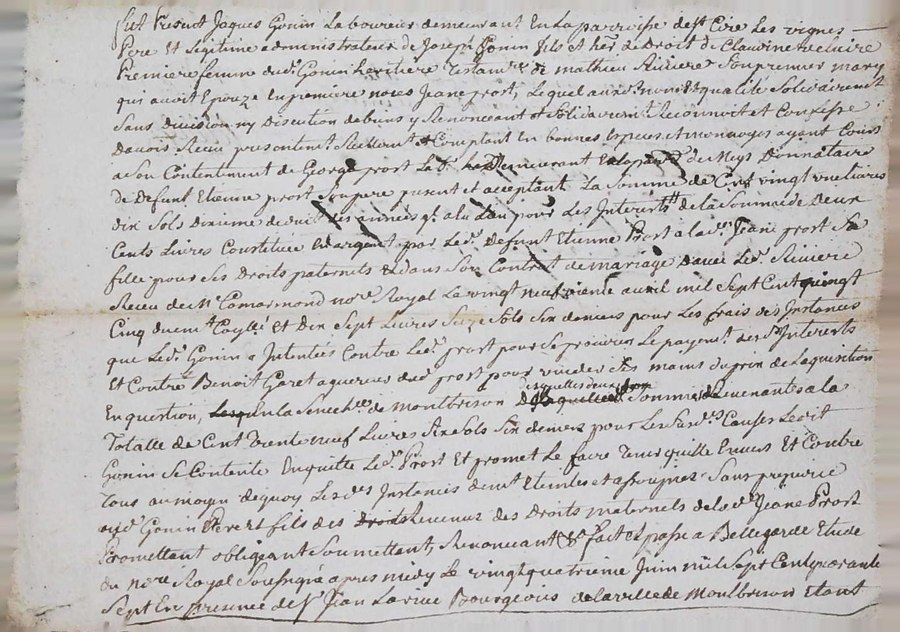 fut Present Jaques Gonin Laboureur demeurant En La parroisse de St Cire Les vignes
Pere Et Legitime administrateur de Joseph Gonin fils et her de Droit de Claudine
Premiere femme dud. Gonin heritiere Testamre de mathieu Riviere Son premier mary
qui avoit Epouzé En premiere noces Jeane prost, Lequel auxd. noms Et qualité Solidairement
Sans Division ny Discution de biens y Renonceant et Solidairemt. Reconnoit et Confesse
Davoir Receu presentemt. Reellemt. et Comptant En bonnes Especes et monnoyes ayant Cours
a Son Contentement de George prost demeurant du Donnataire
de Defunt Etienne prost Son pere present et acceptant La Somme de Cent vingt une livres
Dix Sols Dixieme deduit des années pour Les Interests de la Somme de Deux
Cents Livres Constituée En argent par Led. Defunt Etienne Prost a lad. Jeane prost Sa
fille pour Ses Droits paternels Et dans Son Contrat de mariage avec Led. Riviere
Receu de Me Camarmond nore Royal Le vingt neuf avril mil Sept Cent vingt
Cinq duemt Et Dix Sept Livres Seize Sols Six deniers pour Les frais des Instances
que Led. Gonin a Intentées Contre Led. prost pour Se procurer Le payemt. desd. Interests
Et Contre Benoit Garet aquereur dud. prost pour vuider Ses mains du prix de Laquisition
En question, En la Senechée de Montbrison Desquelles deux Sommes Revenantes a la
Totalle de Cent Trente neuf Livres Six Sols Six deniers pour Les Susd. Causes Ledit
Gonin Se Contente En quitte Led. Prost Et promet Le faire Tenir quitte Envers Et Contre
Tous au moyen de quoy Lesd. Instances demt Eteintes et assoupies Sans prejudice
aud. Gonin Pere et fils des Revenus des Droits maternels de lad. Jeane Prost
Promettant obligeant Soumettant, Renonceant &a fait et passé a Bellegarde Etude
du nore Royal Soussigné apres midy Le vingt quatrieme Juin mil Sept Cent quarante
Sept En presence de Sr Jean Bourgeois de la ville de Montbrison Etant